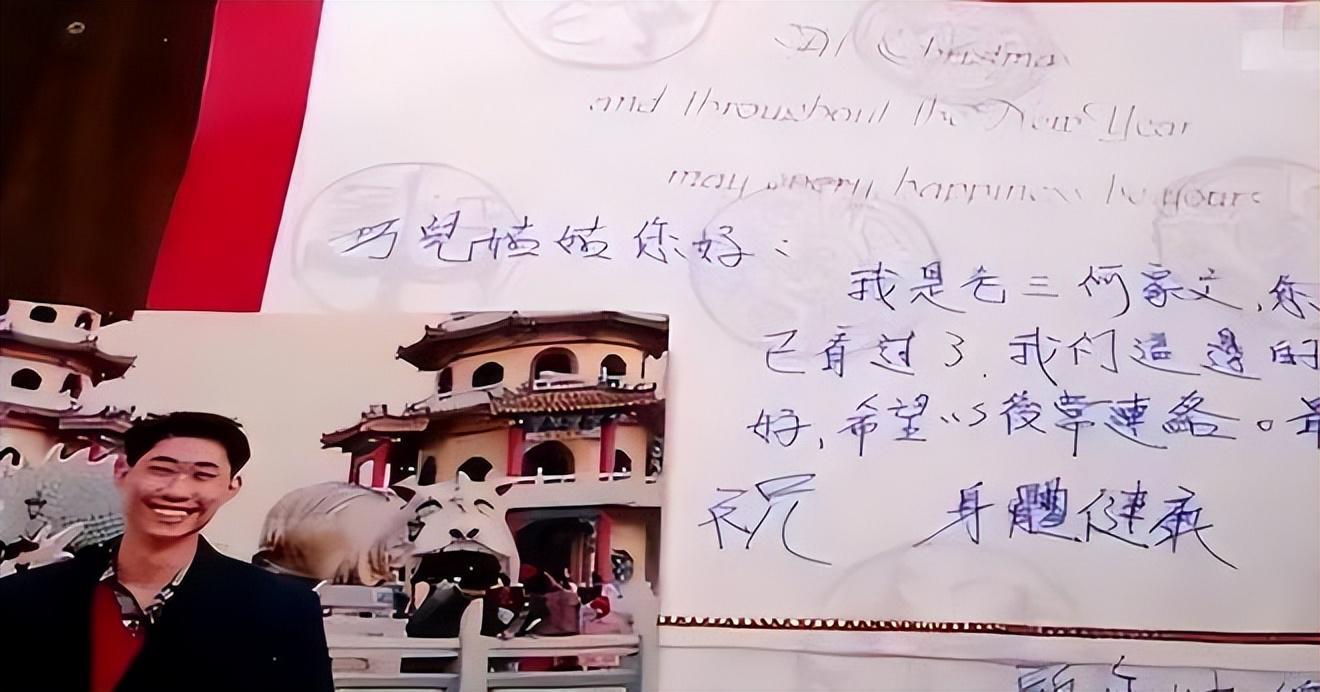 At Christmas
and throughout the New Year
may every happiness be yours
巧兒姑姑您好：
我是老三何家文，您
已看过了．我们這邊的
好，希望以後常連絡。最
祝 身體健康